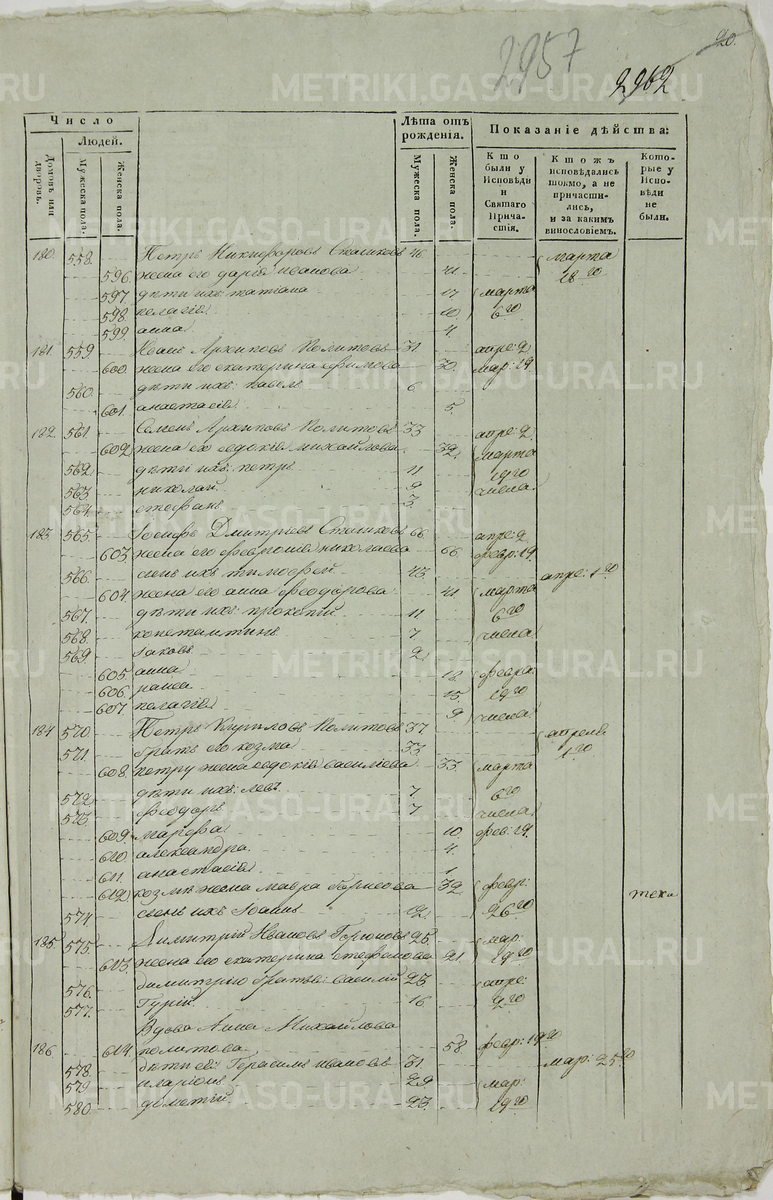 20.
2957
2962
METRIKI.GASO-URAL.RU
Число
Людей.
Домовъ или дворовъ.
Мужеска пола.
Женска пола.
Лѣта отъ рожденія.
Мужеска пола.
Женска пола.
Показаніе дѣйства:
Кто были у Исповѣди и Святаго Причастія.
Кто жъ исповѣдались токмо, а не причастились, и за какимъ винословіемъ.
Которые у Исповѣди не были.
180 558 Петръ Никифоровъ 46 марта
596 жена его дарія иванова 41 18го
597 дѣти ихъ татіана 17 марта
598 пелагія 10 6го
599 анна 4
181 559 Иванъ Архиповъ Политовъ 31 апре: 2
600 жена его екатерина ефимова 30 мар: 19
560 дѣти ихъ павелъ 6
601 анастасія 5
182 561 Семенъ Архиповъ Политовъ 33 апре: 2
602 жена его евдокія михайлова 32 марта
562 дѣти ихъ петръ 11 19го
563 николай 9 числа
564 стефанъ 3
183 565 Іосифъ Дмитріевъ 66 апре: 2
603 жена его февронія николаева 66 февр: 19
566 сынъ ихъ тимофей 43 апре: 1го
604 жена его анна феодорова 41 марта
567 дѣти ихъ прокопій 11 6го
568 константинъ 7 числа
569 іаковъ 2
605 анна 18 февра:
606 раиса 15 19го
607 пелагія 9 числа
184 570 Петръ Кириловъ Политовъ 37 апреля
571 братъ его козма 33 1го
608 петру жена евдокія василіева 33 марта
572 дѣти ихъ левъ 7 6го
573 феодоръ 7 числа
609 марфа 10 фев: 19
610 александра 4
611 анастасія 1
612 козмѣ жена мавра борисова 32 февр:
574 сынъ ихъ Іоаннъ 12 26го
185 575 Димитрій Ивановъ 25 мар:
613 жена его екатерина стефанова 21 19го
576 димитрію братья: василій 23 апре:
577 Гурій 16 2го
Вдова Анна Михайлова
186 614 политова 58 февр: 19го
578 дѣти ея: Герасимъ ивановъ 31 мар: 25го
579 иларіонъ 29 мар:
580 дометій 23 19го